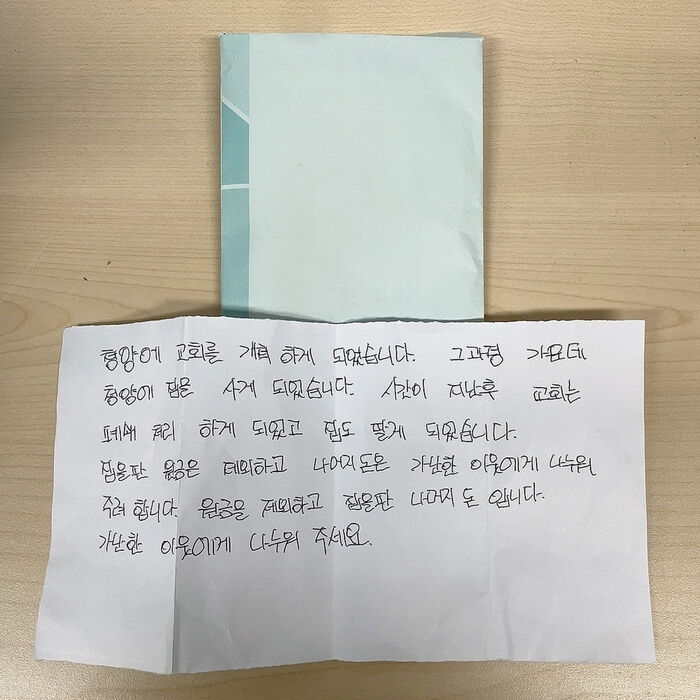 청양에 교회를 개척 하게 되었습니다. 그과정 가운데
청양에 집을 사게 되었습니다. 시간이 지난후 교회는
폐쇄 처리 하게 되었고 집도 팔게 되었습니다.
집을판 원금은 제외하고 나머지돈은 가난한 이웃에게 나누워
주려 합니다. 원금을 제외하고 집을판 나머지돈 입니다.
가난한 이웃에게 나누워 주세요.